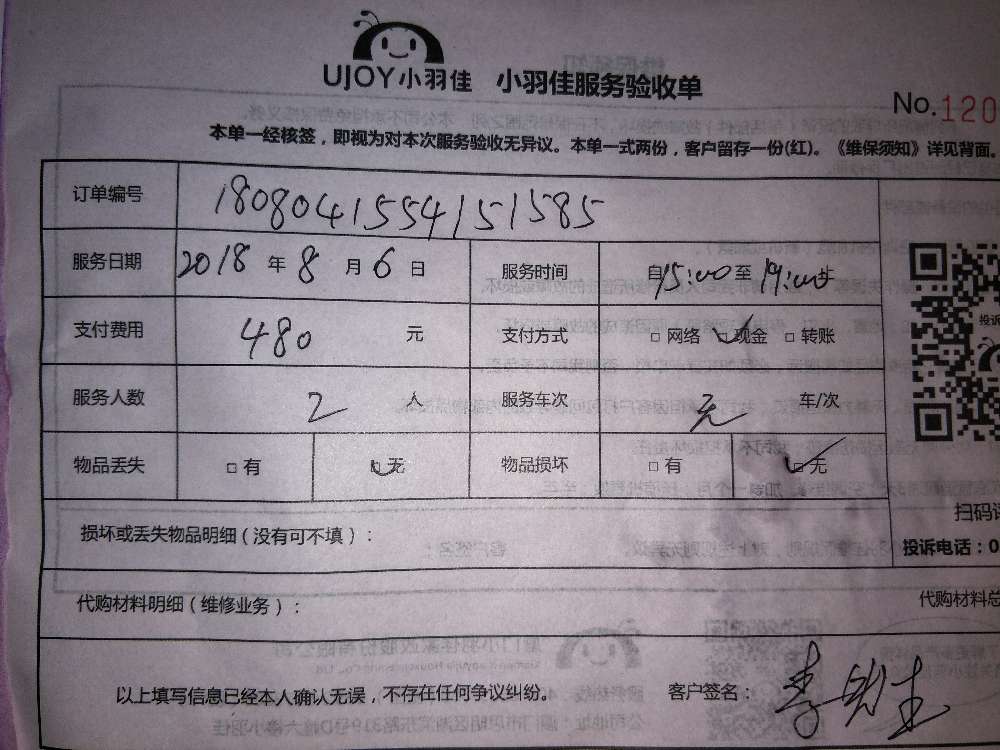 UJOY小羽佳 小羽佳服务验收单
No.120
本单一经核签，即视为对本次服务验收无异议。本单一式两份，客户留存一份(红)。《维保须知》详见背面。
订单编号 1808041554151585
服务日期 2018年8月6日 服务时间 自15:00至19:00止
支付费用 480元 支付方式 □网络 □现金 □转账
服务人数 2人 服务车次 无 车/次
物品丢失 □有 □无 物品损坏 □有 □无
投诉
扫码
损坏或丢失物品明细（没有可不填）：
投诉电话：0
代购材料明细（维修业务）：
代购材料总
以上填写信息已经本人确认无误，不存在任何争议纠纷。 客户签名： 李先生